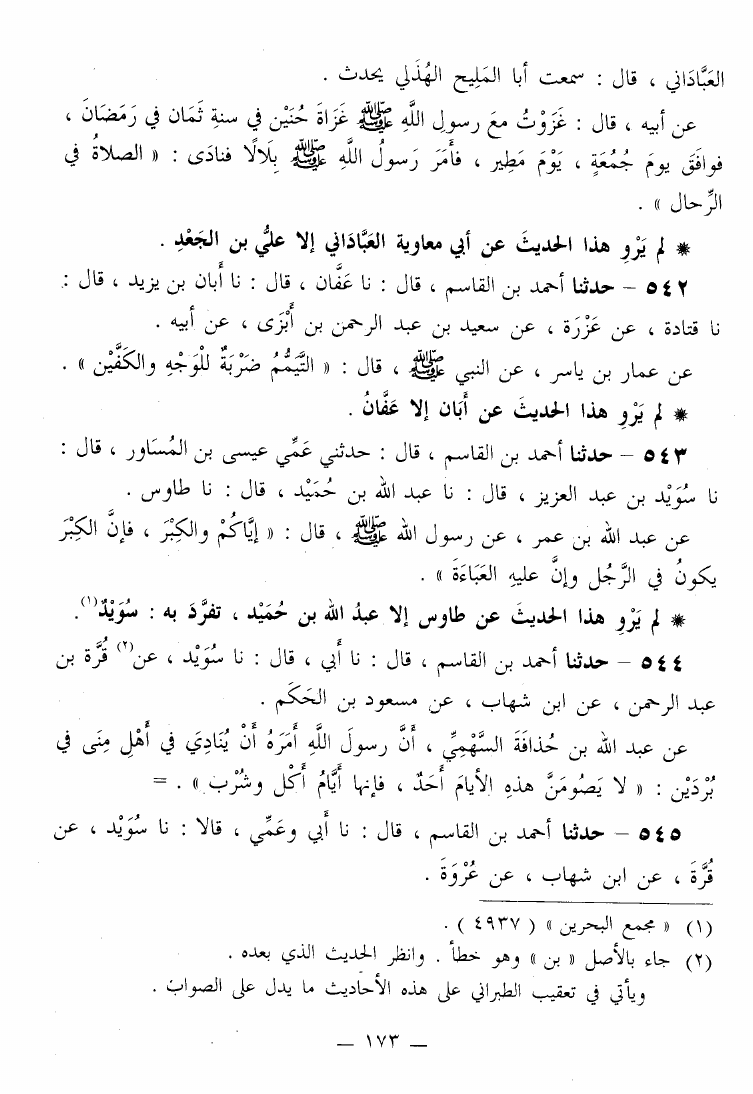 العَبَّادَاني ، قال : سمعت أبا المَلِيح الهُذَلي يحدث .
عن أبيه ، قال : غَزَوْتُ معَ رسولِ اللَّهِ ﷺ غَزَاةَ حُنَيْن في سنةِ ثَمَان في رَمَضَانَ ،
فوافَقَ يومَ جُمُعَةٍ ، يَوْمَ مَطِير ، فأَمَرَ رَسولُ اللَّهِ ﷺ بِلَالًا فنادَى : « الصلاةُ في
الرِّحال » .
* لم يَرْوِ هذا الحديثَ عن أبي معاوية العَبَّادَاني إلا عليُّ بن الجَعْدِ .
٥٤٢ – حدثنا أحمد بن القاسم ، قال : نا عَفَّان ، قال : نا أَبان بن يزيد ، قال :
نا قتادة ، عن عَزْرَة ، عن سعيد بن عبد الرحمن بن أَبْزَى ، عن أبيه .
عن عمار بن ياسر ، عن النبي ﷺ ، قال : « التَّيَمُّمُ ضَرْبَةٌ لْلْوَجْهِ والكَفَّيْن » .
* لم يَرْوِ هذا الحديثَ عن أَبَان إلا عَفَّانُ .
٥٤٣ – حدثنا أحمد بن القاسم ، قال : حدثني عَمِّي عيسى بن المُسَاور ، قال :
نا سُوَيْد بن عبد العزيز ، قال : نا عبد الله بن حُمَيْد ، قال : نا طاوس .
عن عبد الله بن عمر ، عن رسول الله ﷺ ، قال : « إيَّاكُمْ والكِبْرَ ، فإنَّ الكِبْرَ
يكونُ في الرَّجُل وإنَّ عليهِ العَبَاءَةَ » .
* لم يَرْوِ هذا الحديثَ عن طاوس إلا عبدُ الله بن حُمَيْد ، تفرَّدَ به : سُوَيْدٌ(١).
٥٤٤ – حدثنا أحمد بن القاسم ، قال : نا أَبي ، قال : نا سُوَيْد ، عن(٢) قُرَّة بن
عبد الرحمن ، عن ابن شهاب ، عن مسعود بن الحَكَم .
عن عبد الله بن حُذافَةَ السَّهْمِيِّ ، أَنَّ رسولَ اللَّهِ أَمَرَهُ أَنْ يُنَادِيَ في أَهْلِ مِنَى في
بُرْدَيْن : « لا يَصُومَنَّ هذهِ الأيامَ أَحَدٌ ، فإنها أَيَّامُ أَكْل وشُرْب » . =
٥٤٥ – حدثنا أحمد بن القاسم ، قال : نا أَبي وعَمِّي ، قالا : نا سُوَيْد ، عن
قُرَّةَ ، عن ابن شهاب ، عن عُرْوَةَ .
(١) « مجمع البحرين » ( ٤٩٣٧ ) .
(٢) جاء بالأصل « بن » وهو خطأ . وانظر الحديث الذي بعده .
ويأتي في تعقيب الطبراني على هذه الأحاديث ما يدل على الصواب .
– ١٧٣ –